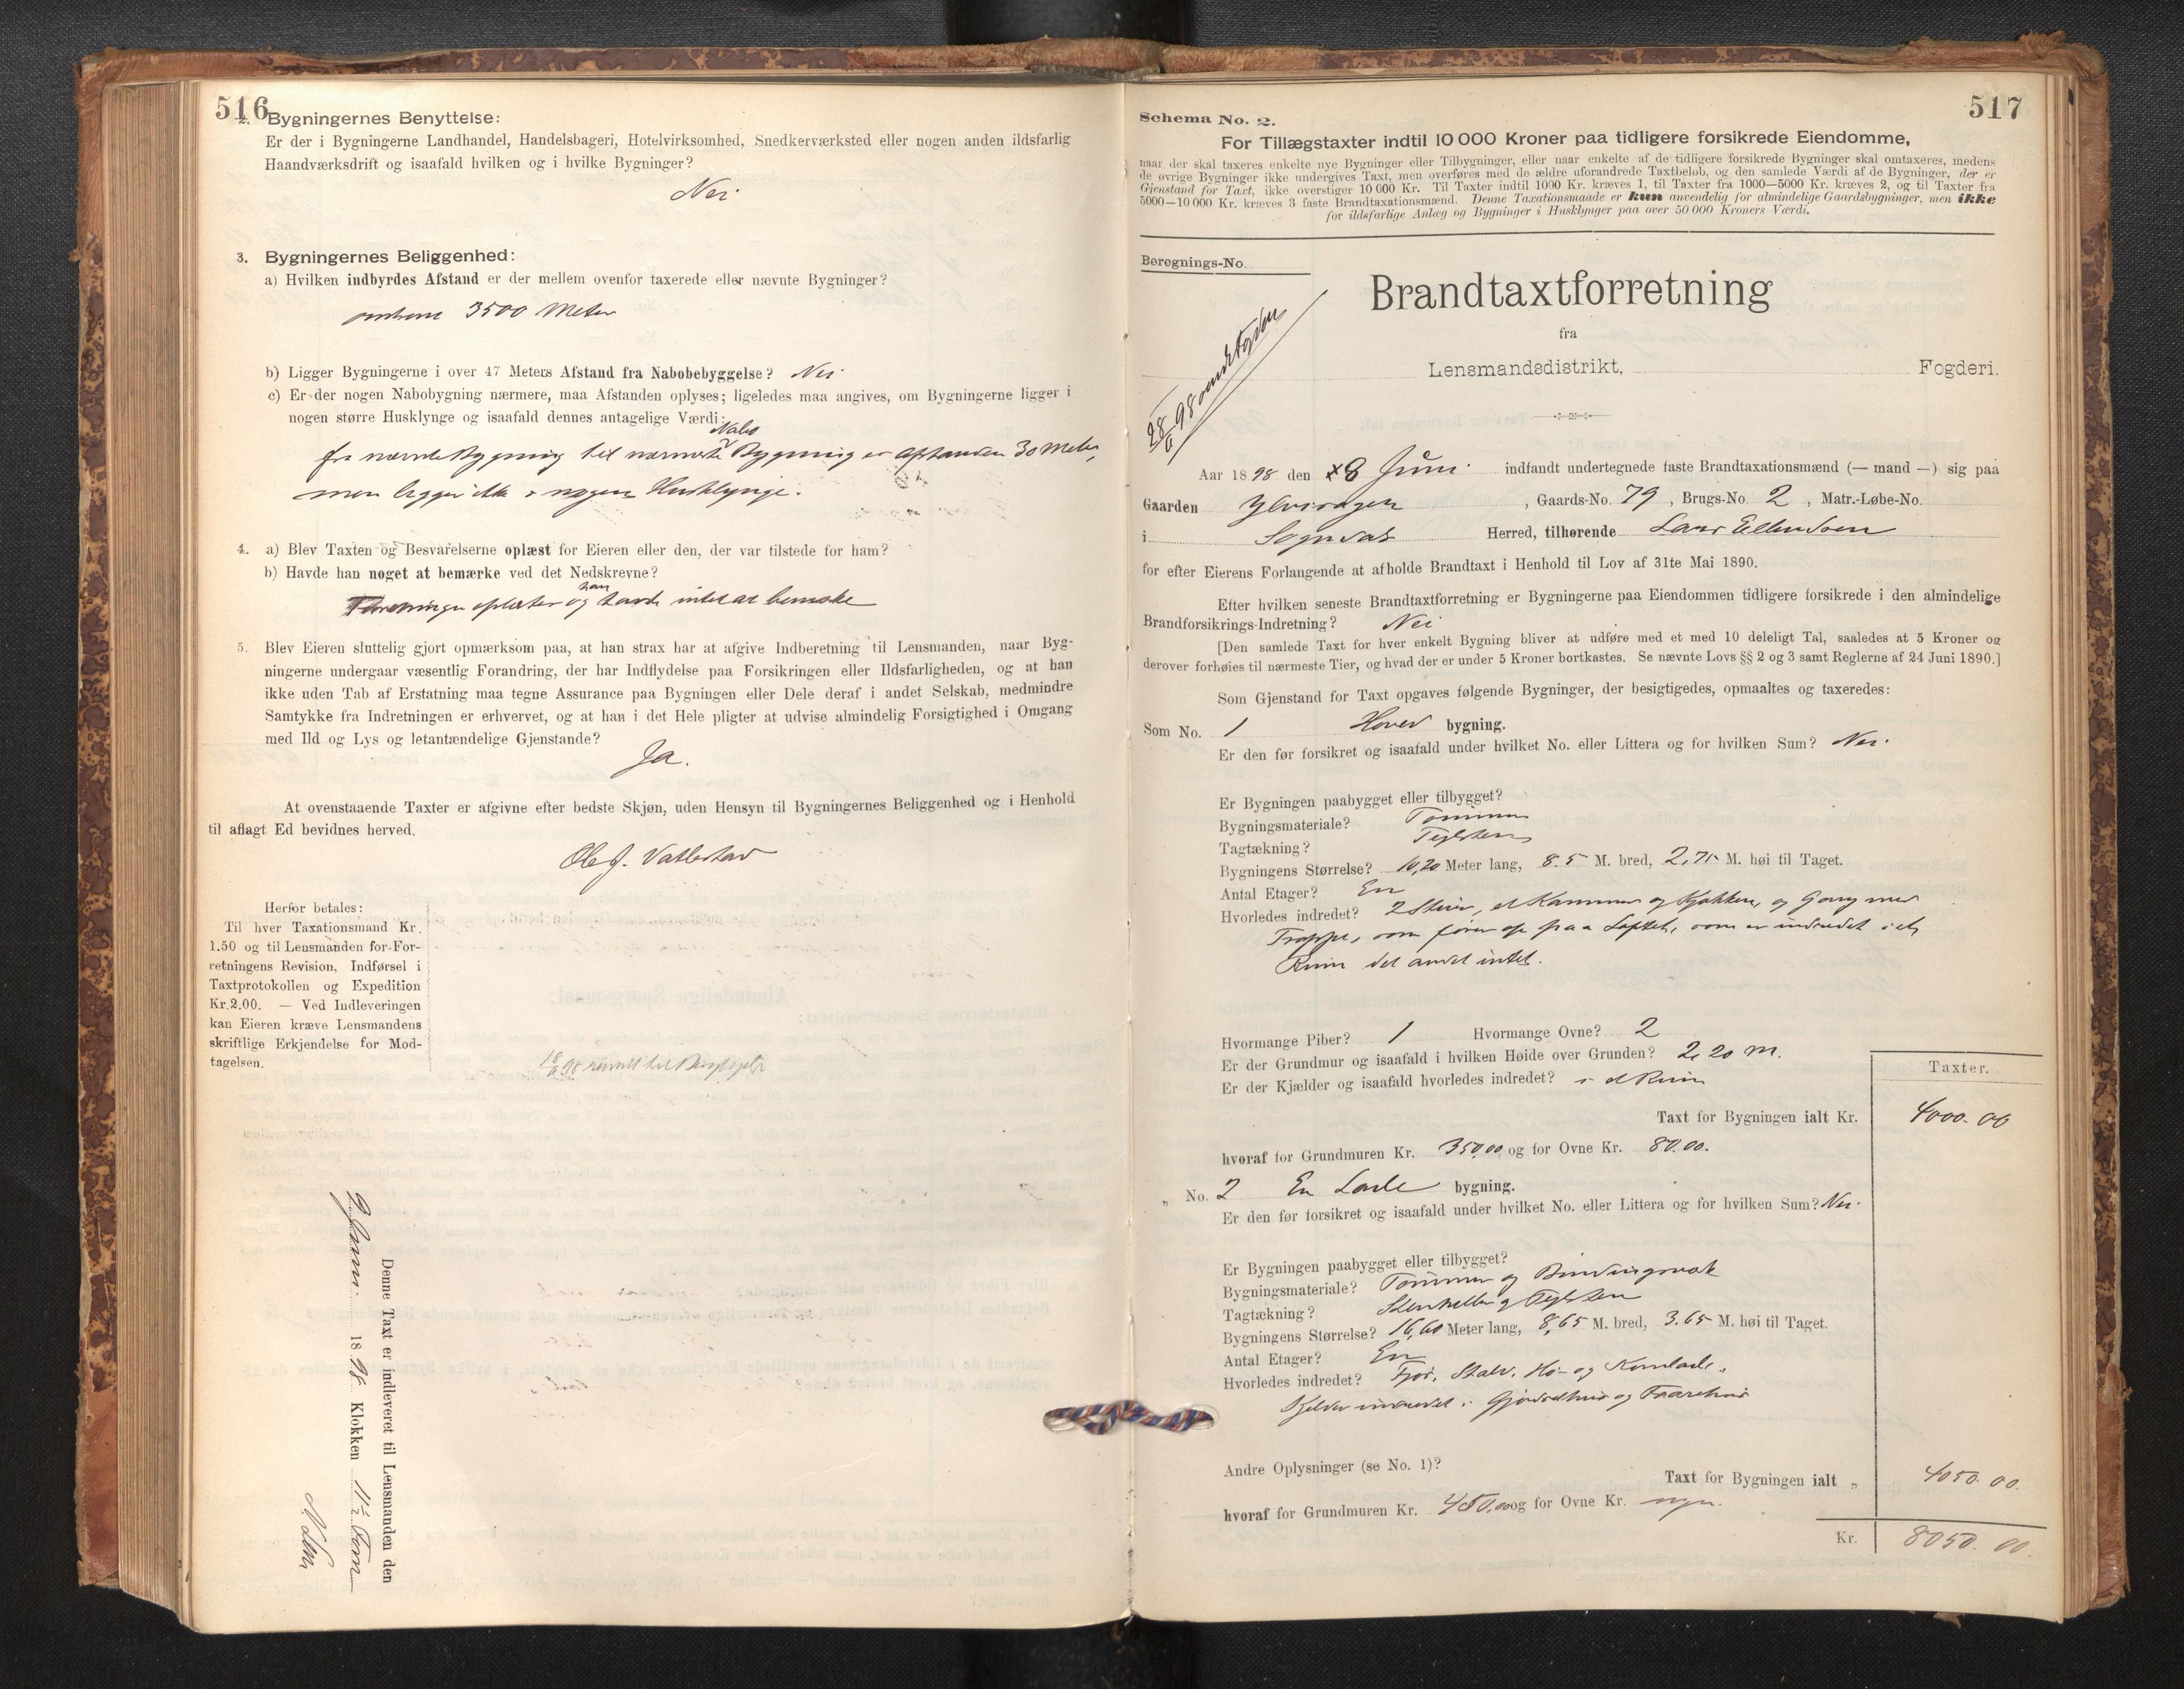 516
2. Bygningernes Benyttelse:
Er der i Bygningerne Landhandel, Handelsbageri, Hotelvirksomhed, Snedkerværksted eller nogen anden ildsfarlig
Haandværksdrift og isaafald hvilken og i hvilke Bygninger?
Nei
3. Bygningernes Beliggenhed:
a) Hvilken indbyrdes Afstand er der mellem ovenfor taxerede eller nævnte Bygninger?
omkring 3500 Meter
b) Ligger Bygningerne i over 47 Meters Afstand fra Nabobebyggelse? Nei
c) Er der nogen Nabobygning nærmere, maa Afstanden oplyses; ligeledes maa angives, om Bygningerne ligger i
nogen større Husklynge og isaafald dennes antagelige Værdi:
Nabo
fra nævnte Bygning til nærmeste Bygning er Afstanden 30 Meter,
men ligger ikke i nogen Husklynge.
4. a) Blev Taxten og Besvarelserne oplæst for Eieren eller den, der var tilstede for ham?
b) Havde han noget at bemærke ved det Nedskrevne?
han
Forretningen oplæstes og havde intet at bemærke
5. Blev Eieren sluttelig gjort opmærksom paa, at han strax har at afgive Indberetning til Lensmanden, naar Byg-
ningerne undergaar væsentlig Forandring, der har Indflydelse paa Forsikringen eller Ildsfarligheden, og at han
ikke uden Tab af Erstatning maa tegne Assurance paa Bygningen eller Dele deraf i andet Selskab, medmindre
Samtykke fra Indretningen er erhvervet, og at han i det Hele pligter at udvise almindelig Forsigtighed i Omgang
med Ild og Lys og letantændelige Gjenstande?
Ja.
At ovenstaaende Taxter er afgivne efter bedste Skjøn, uden Hensyn til Bygningernes Beliggenhed og i Henhold
til aflagt Ed bevidnes herved.
Ole J. Vallestad
Herfor betales:
Til hver Taxationsmand Kr.
1.50 og til Lensmanden for For-
retningens Revision, Indførsel i
Taxtprotokollen og Expedition
Kr. 2.00. — Ved Indleveringen
kan Eieren kræve Lensmandens
skriftlige Erkjendelse for Mod-
tagelsen.
Denne Taxt er indleveret til Lensmanden den
9 Juni 1898 Klokken 11½ Form
517
Schema No. 2.
For Tillægstaxter indtil 10 000 Kroner paa tidligere forsikrede Eiendomme,
naar der skal taxeres enkelte nye Bygninger eller Tilbygninger, eller naar enkelte af de tidligere forsikrede Bygninger skal omtaxeres, medens
de øvrige Bygninger ikke undergives Taxt, men overføres med de ældre uforandrede Taxtbeløb, og den samlede Værdi af de Bygninger, der er
Gjenstand for Taxt, ikke overstiger 10 000 Kr. Til Taxter indtil 1000 Kr. kræves 1, til Taxter fra 1000—5000 Kr. kræves 2, og til Taxter fra
5000—10 000 Kr. kræves 3 faste Brandtaxationsmænd. Denne Taxationsmaade er kun anvendelig for almindelige Gaardsbygninger, men ikke
for ildsfarlige Anlæg og Bygninger i Husklynger paa over 50 000 Kroners Værdi.
Beregnings-No.
Brandtaxtforretning
fra
Lensmandsdistrikt, Fogderi.
Aar 1898 den 8 Juni indfandt undertegnede faste Brandtaxationsmænd (— mand —) sig paa
Gaarden Ylvisagen, Gaards-No. 79, Brugs-No. 2, Matr.-Løbe-No.
i Sogndal Herred, tilhørende Lars Ellendsen
for efter Eierens Forlangende at afholde Brandtaxt i Henhold til Lov af 31te Mai 1890.
Efter hvilken seneste Brandtaxtforretning er Bygningerne paa Eiendommen tidligere forsikrede i den almindelige
Brandforsikrings-Indretning? Nei
[Den samlede Taxt for hver enkelt Bygning bliver at udføre med et med 10 deleligt Tal, saaledes at 5 Kroner og
derover forhøies til nærmeste Tier, og hvad der er under 5 Kroner bortkastes. Se nævnte Lovs §§ 2 og 3 samt Reglerne af 24 Juni 1890.]
Som Gjenstand for Taxt opgaves følgende Bygninger, der besigtigedes, opmaaltes og taxeredes:
Som No. 1 Hoved bygning.
Er den før forsikret og isaafald under hvilket No. eller Littera og for hvilken Sum? Nei.
Er Bygningen paabygget eller tilbygget?
Bygningsmateriale? Tømmer
Tagtækning? Teglsten
Bygningens Størrelse? 10,20 Meter lang, 8.5 M. bred, 2,75 M. høi til Taget.
Antal Etager? En
Hvorledes indredet? 2 Stuer, et Kammer og Kjøkken, og Gang med
Trappe, som fører op paa Loftet, som er indredet i et
Rum det andet intet.
Hvormange Piber? 1 Hvormange Ovne? 2
Er der Grundmur og isaafald i hvilken Høide over Grunden? 2,20 m.
Er der Kjælder og isaafald hvorledes indredet? i et Rum
Taxter.
Taxt for Bygningen ialt Kr. 4000.00
hvoraf for Grundmuren Kr. 350,00 og for Ovne Kr. 80.00.
„ No. 2 En Lade bygning.
Er den før forsikret og isaafald under hvilket No. eller Littera og for hvilken Sum? Nei.
Er Bygningen paabygget eller tilbygget?
Bygningsmateriale? Tømmer og Bindingsværk
Tagtækning? Stenheller og Teglsten
Bygningens Størrelse? 16,60 Meter lang, 8,65 M. bred, 3.65 M. høi til Taget.
Antal Etager? En
Hvorledes indredet? Fjøs, Stald, Hø- og Kornlade,
Kjelder indredet i Gjødselhus og Faarehus
Andre Oplysninger (se No. 1)?
Taxt for Bygningen ialt „ 4050.00.
hvoraf for Grundmuren Kr. 450,00 og for Ovne Kr. ingen.
Kr. 8050.00.